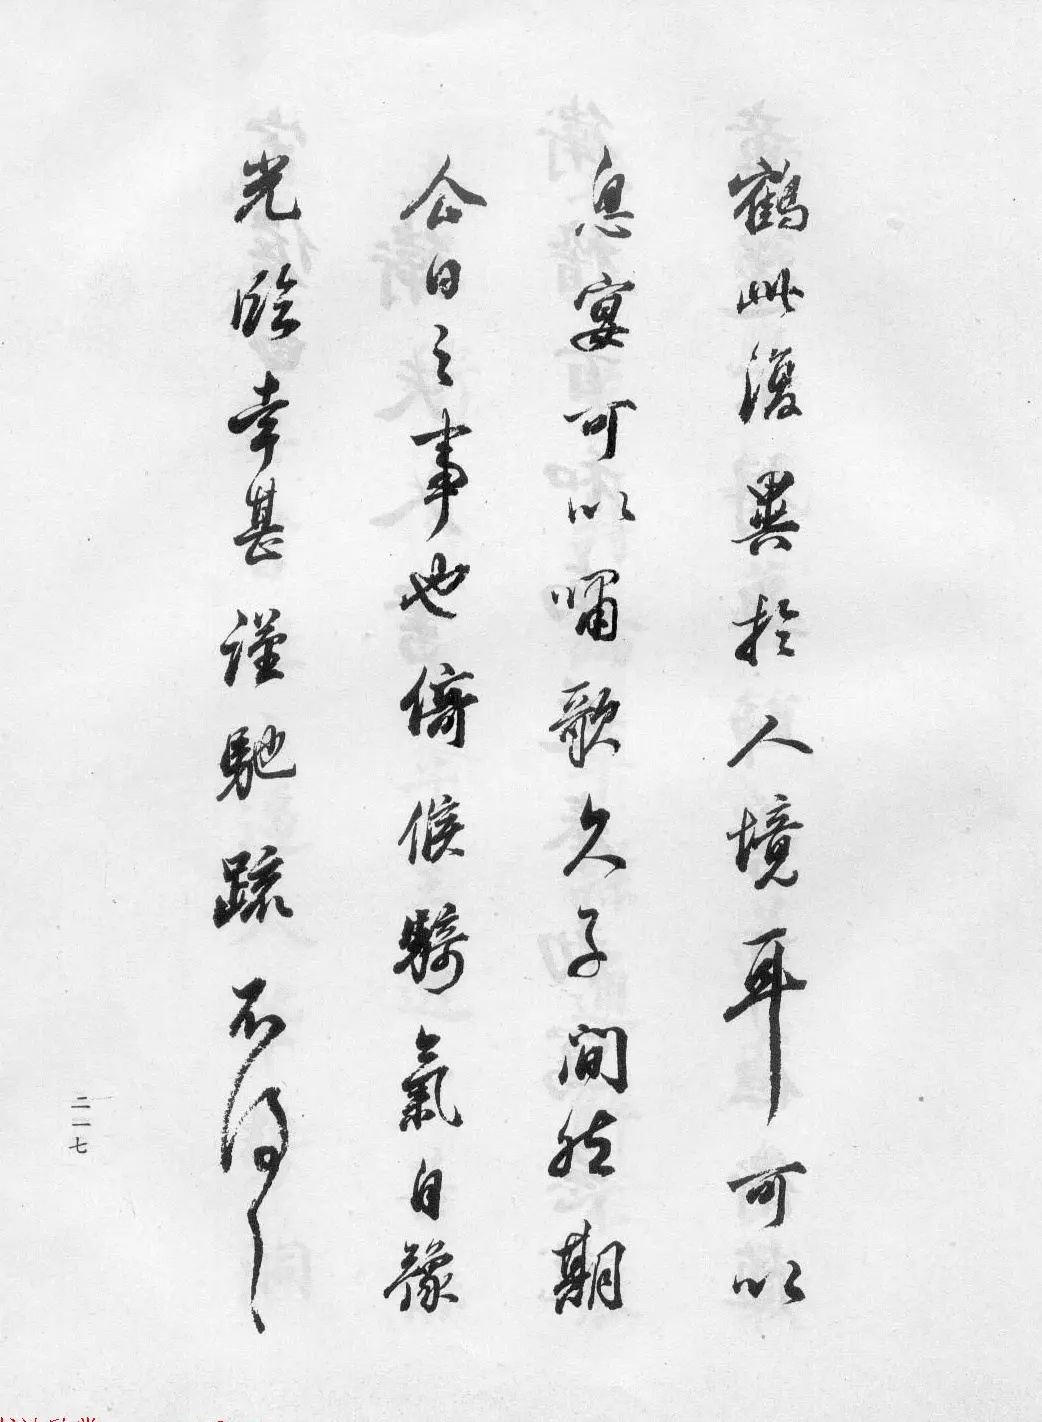 鶴此復異於人境耳可以
息宴可以嘯歌久子間然期
今日之事也倚候騎氣自豫
光臨幸甚謹馳疏不
二一七